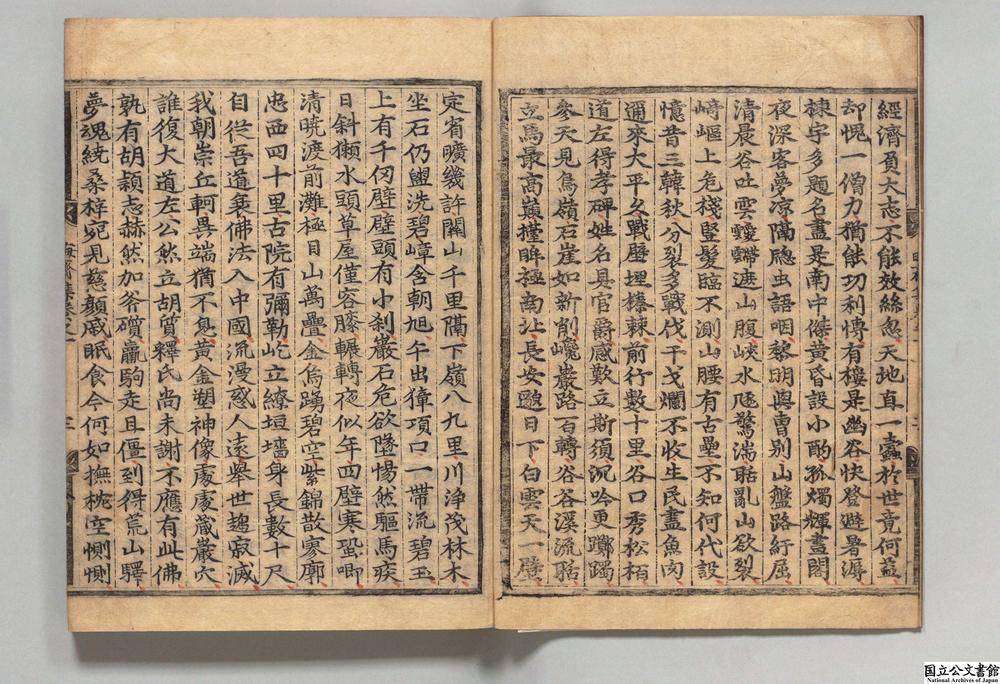 經濟負大志不能效絲忽天地直一蠹於世竟何益
却愧一僧力猶能功利博有樓是幽谷快登避暑溽
棟宇多題名盡是南中傑黃昏設小酌孤燭輝畫閣
夜深客夢凉隔隱虫語咽黎明與曺別山盤路紆屈
清晨谷吐雲靉靆遮山腹峽水隱驚湍聒亂山欲裂
﨑嶇上危棧竪髮臨不測山腰有古壘不知何代設
憶昔三韓秋分裂多戰伐干戈爛不收生民盡魚肉
邇來大平久戰壘埋榛棘前行數十里谷口秀松栢
道左得孝碑姓名具官爵感歎立斯須沉吟更躑躅
參天見鳥嶺石崖如新削巉巖路百轉谷谷瀑流聒
立馬最高巔擡眸極南北長安隱日下白雲天一壁
定省曠幾許關山千里隔下嶺八九里川浄茂林木
坐石仍盥洗碧嶂含朝旭午出獐項口一帶流碧玉
上有千仞壁壁頭有小刹巖石危欲墜惕然驅馬疾
日斜獺水頭草屋僅容膝輾轉夜似年四壁寒蛩喞
清曉渡前灘極目山萬疊金烏踴碧空紫錦散寥廓
忠西四十里古院有彌勒屹立繚垣墻身長數十尺
自從吾道衰佛法入中國流漫惑人遠舉世趍寂滅
我朝崇丘軻異端猶不息黃金塑神像處處藏巖穴
誰復大道左公然立胡質釋氏尚未謝不應有此佛
孰有胡穎志赫然加斧礩羸駒走且僵到得荒山驛
夢魂繞桑梓宛見慈顔戚眠食今何如撫枕空惻惻
国立公文書館
National Archives of Japan